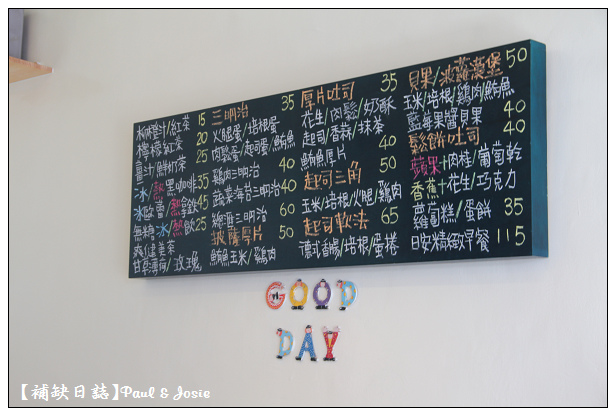 柳橙汁/紅茶 15
檸檬紅茶 20
薑汁/鮮奶茶 25
冰/熱黑咖啡 35
冰歐蕾/熱拿鐵 45
無糖 冰/熱飲 25
爽健美茶
甘菊薄荷/玫瑰
三明治 35
火腿蛋/培根蛋
肉鬆蛋/起司蛋/鮪魚
鷄肉三明治 40
蔬菜海苔三明治 40
總匯三明治 60
披薩厚片 50
鮪魚玉米/鷄肉
厚片吐司 35
花生/肉鬆/奶酥
起司/香蒜/抹茶
鮪魚厚片 40
起司三角 50
玉米/培根/火腿/鷄肉
起司軟法 65
德式香腸/培根/蛋捲
貝果/波蘿漢堡 50
玉米/培根/鷄肉/鮪魚
藍莓果醬貝果 40
鬆餅吐司 40
蘋果+肉桂/葡萄乾
香蕉+花生/巧克力
蘿蔔糕/蛋餅 35
日安精緻早餐 115
GOOD
DAY
【補缺日誌】Paul & Josie